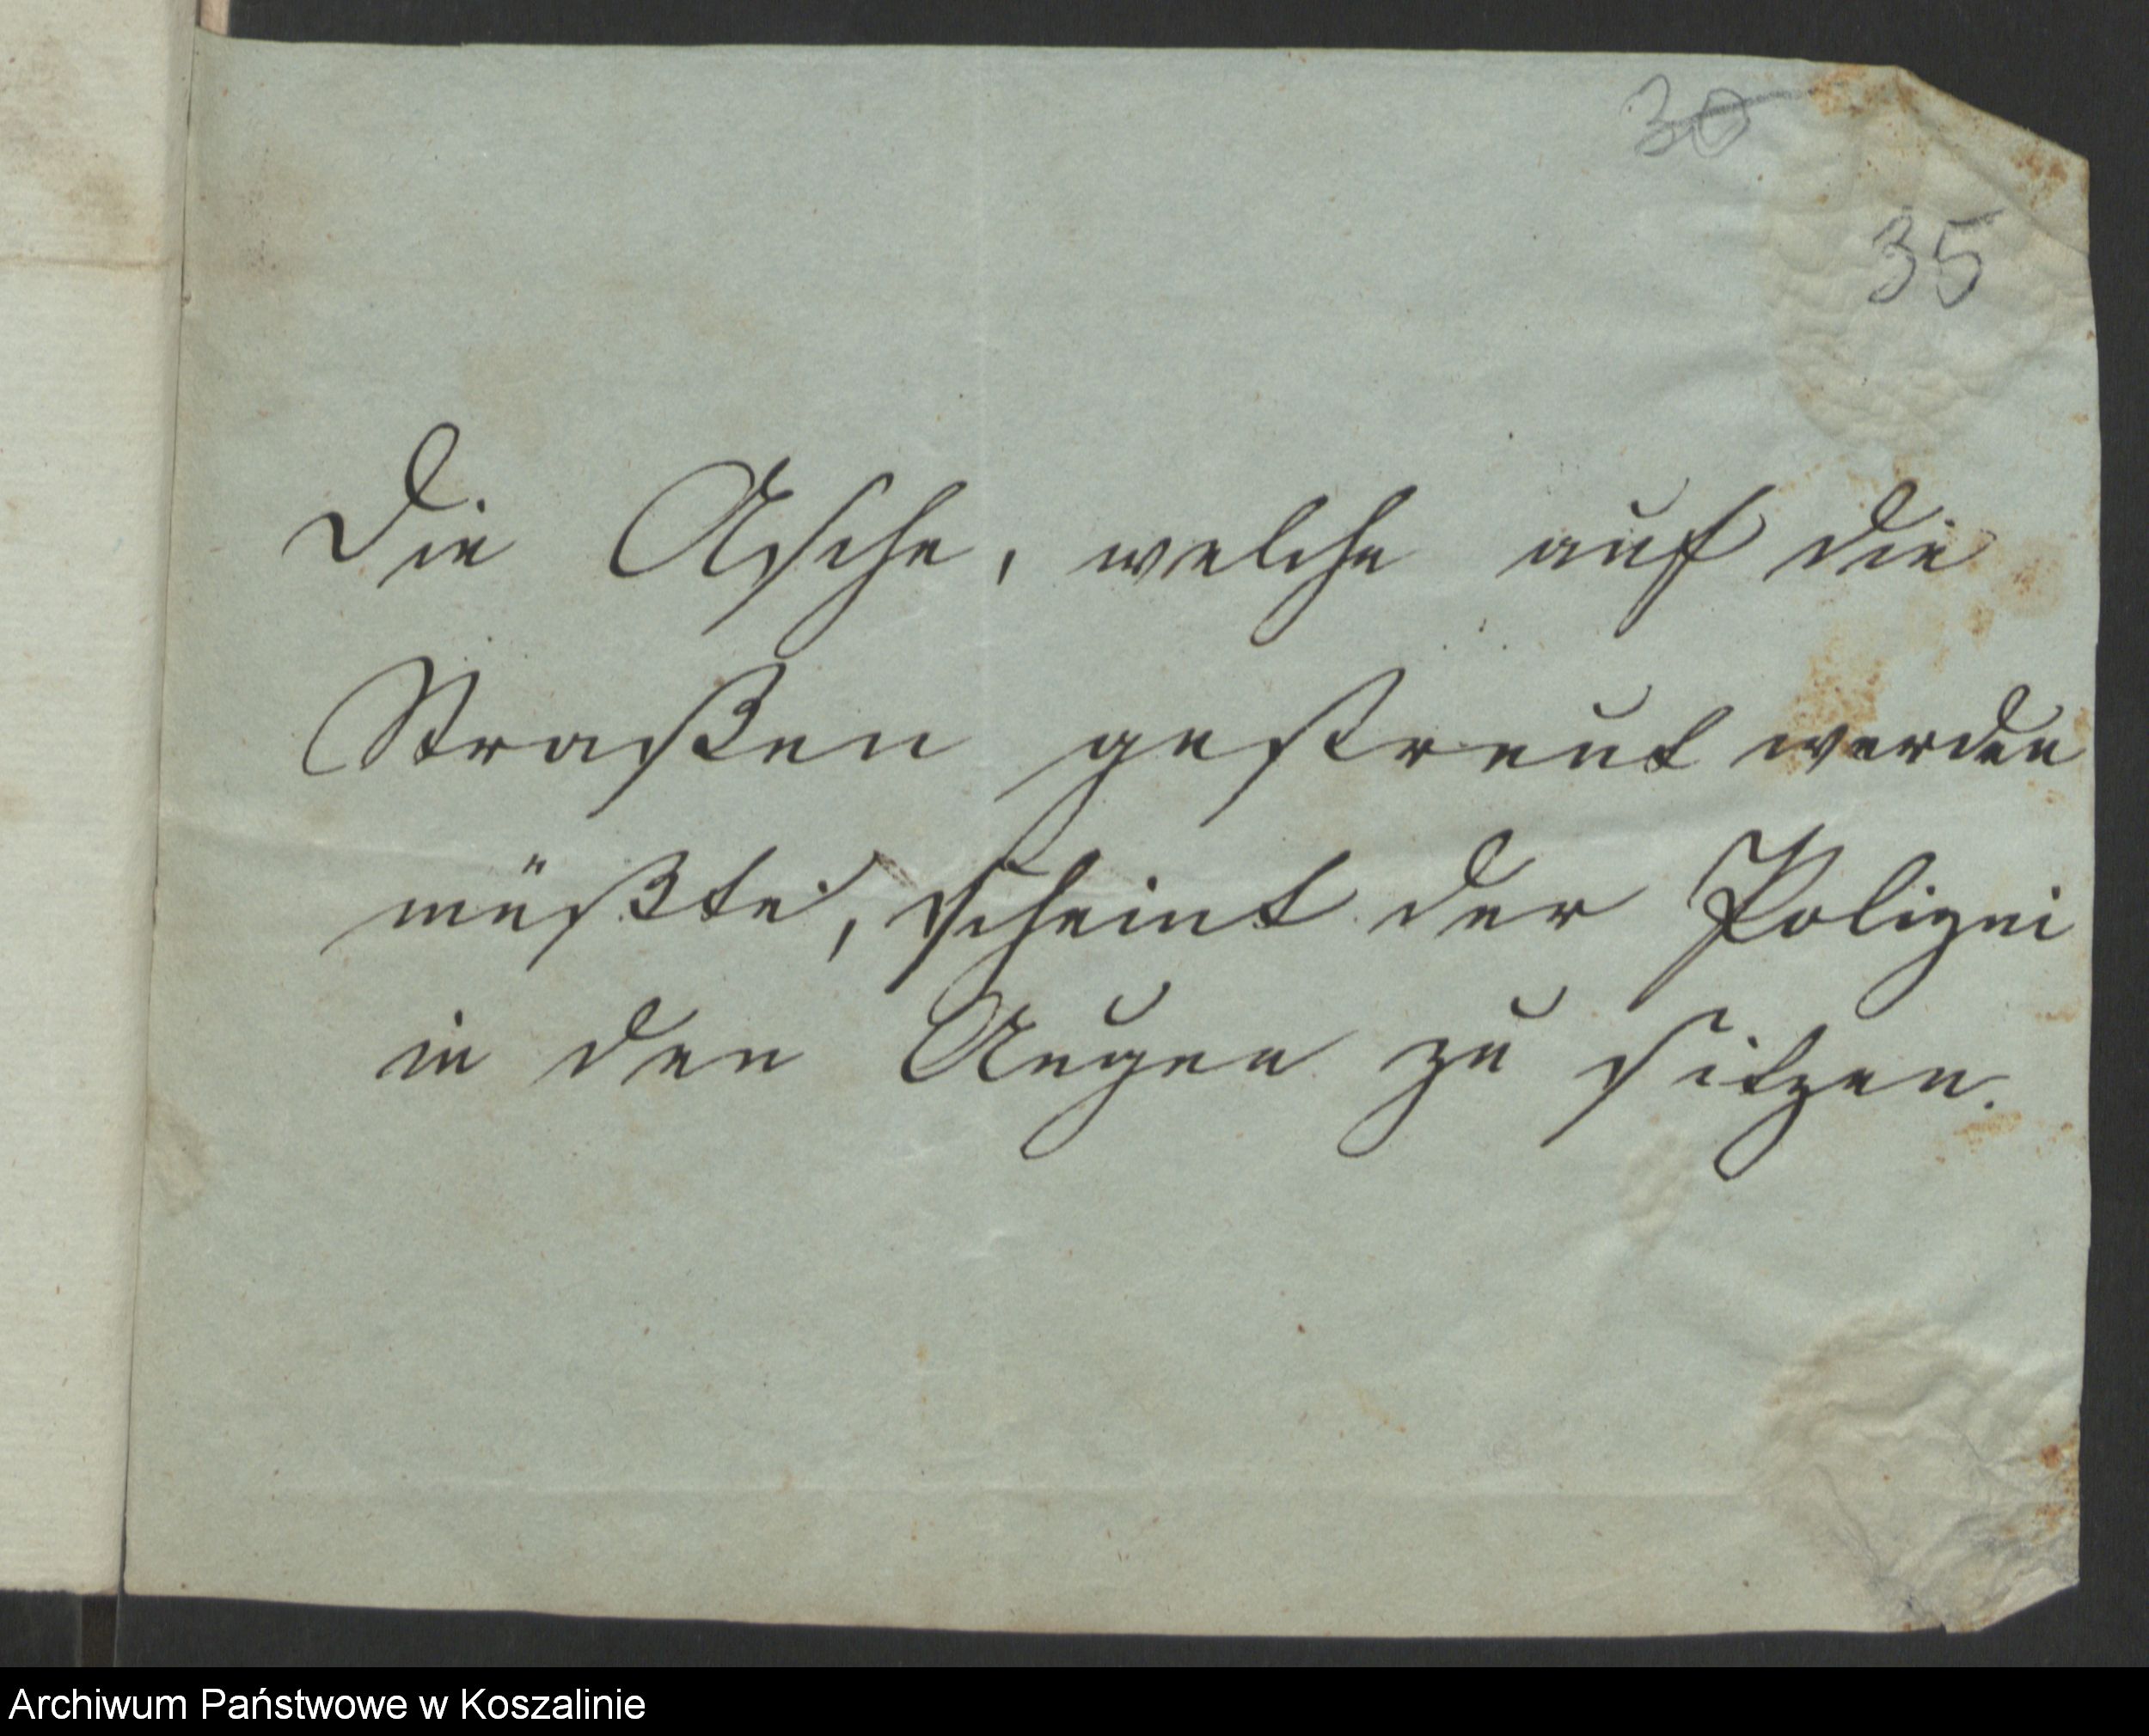 30
35
Die Asche, welche auf die
Straßen gestreut werden
müßte, scheint der Polizei
in den Augen zu sitzen.
Archiwum Państwowe w Koszalinie